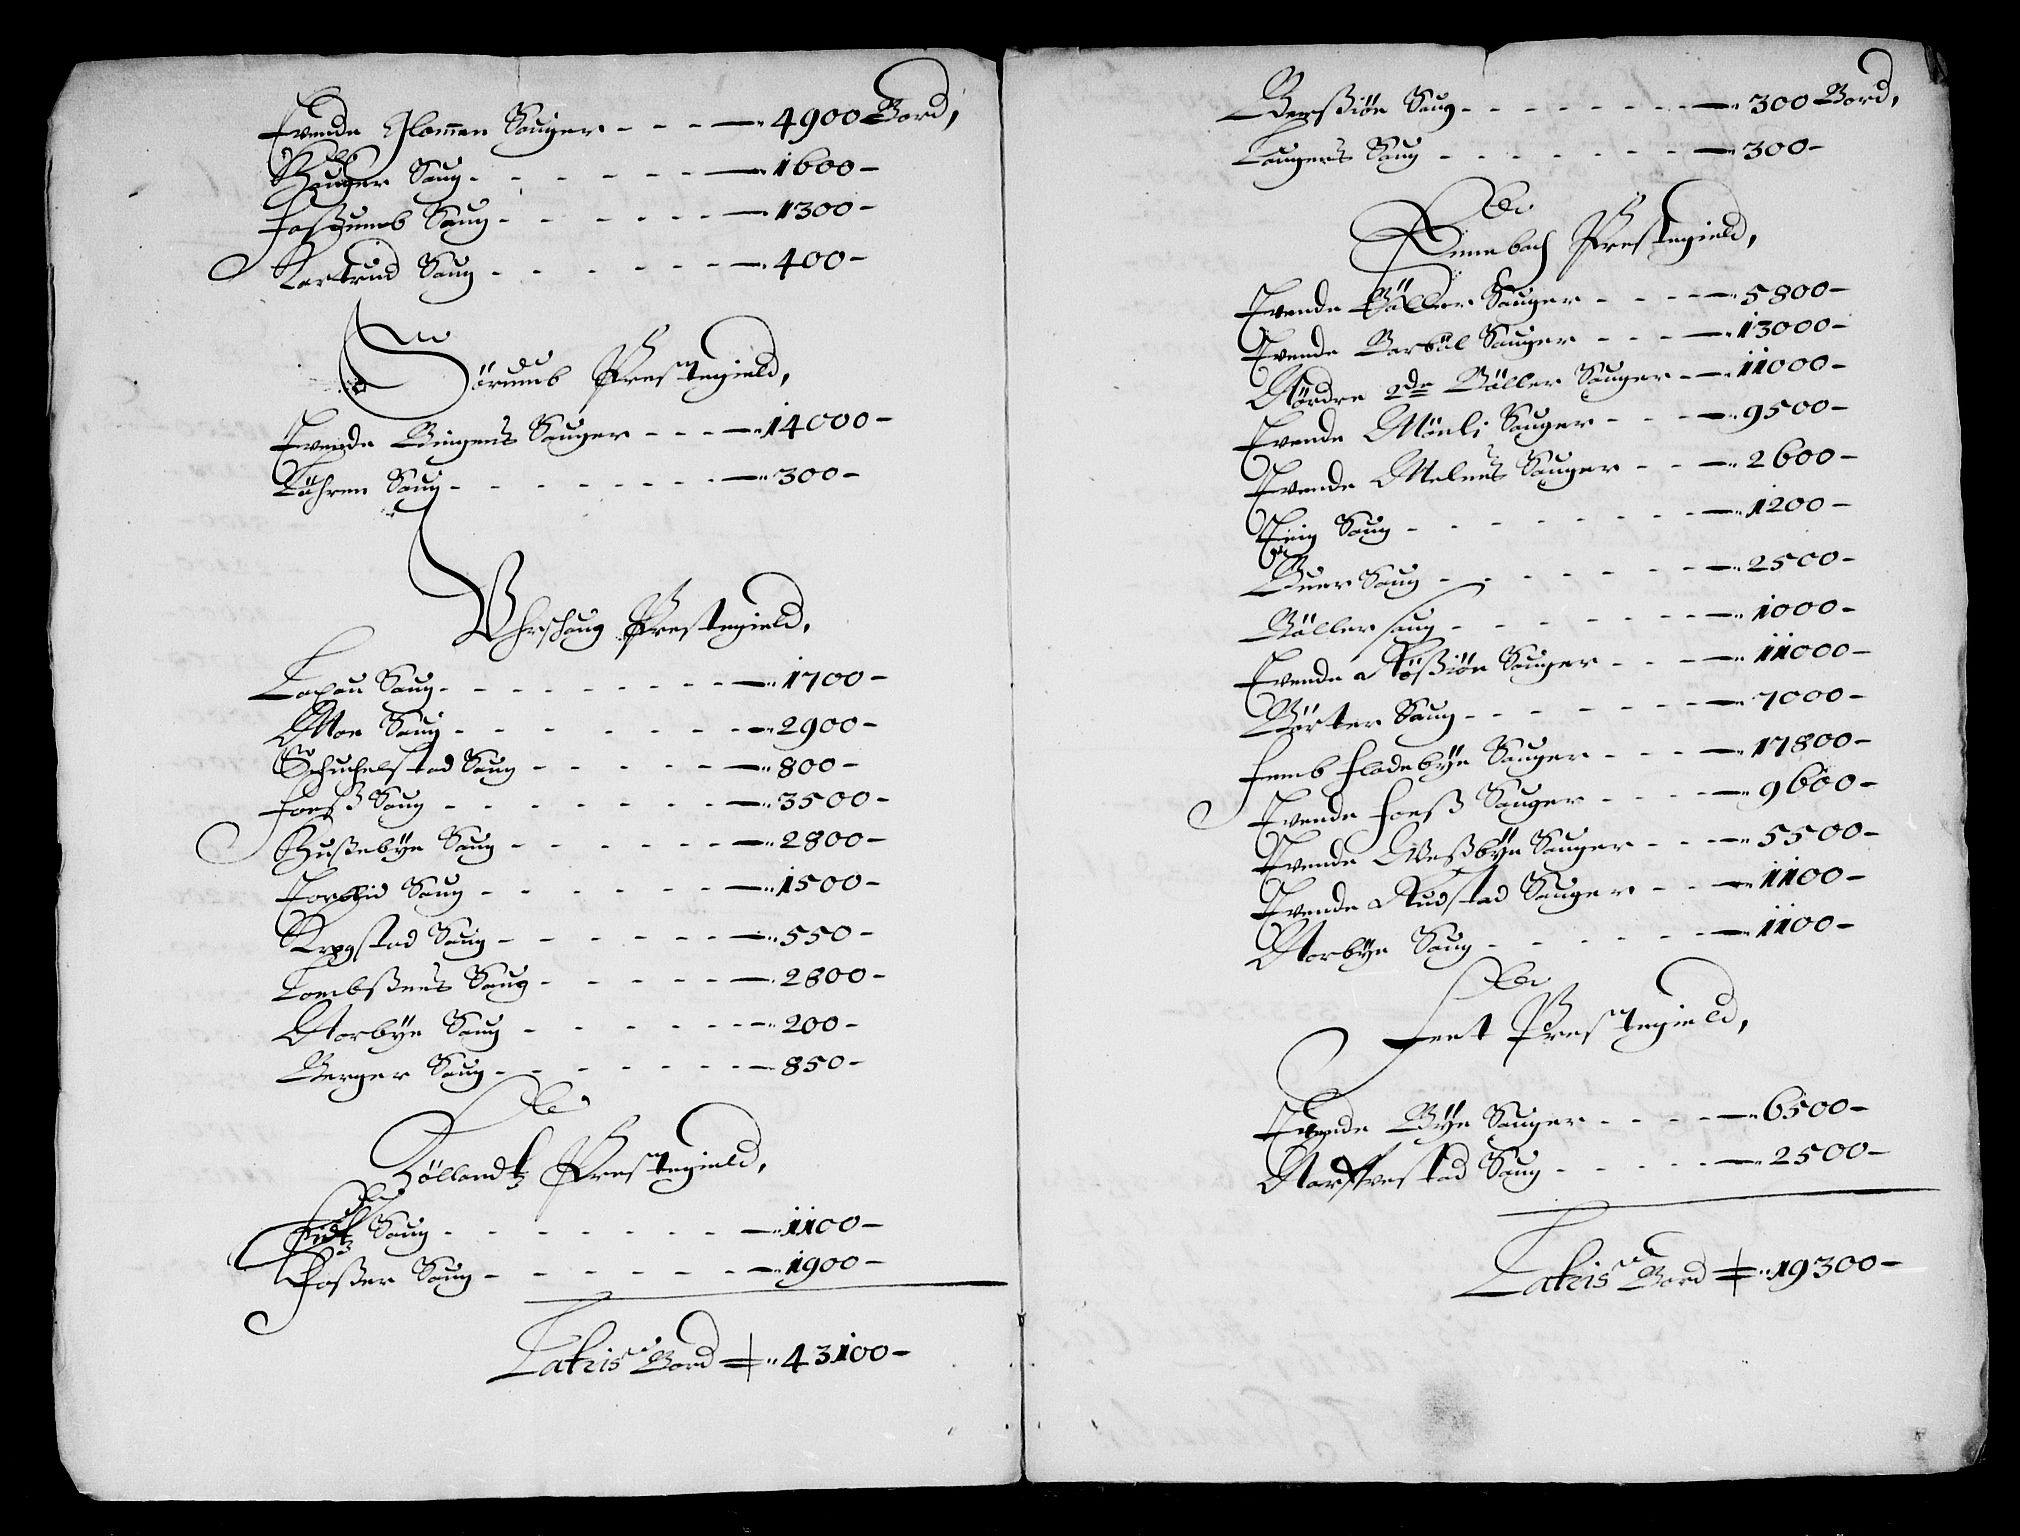 Tvende Glommen Sauger - - - 4900 Bord,
Bauger Saug - - - 1600 -
Foßumb Saug - - - 1300 -
Kartrud Saug - - - 400 -
Sörumb Prestegield,
Tvende Bingens Sauger - - - 14000 -
Löhren Saug - - - 300 -
Uhrschoug Prestegield,
Lochou Saug - - - 1700 -
Moe Saug - - - 2900 -
Schuchelstad Saug - - - 800 -
Foeß Saug - - - 3500 -
Hußebÿe Saug - - - 2800 -
Torchid Saug - - - 1500 -
Krogstad Saug - - - 550 -
Lombßnes Saug - - - 2800 -
Norbÿe Saug - - - 200 -
Berger Saug - - - 850 -
Höllandtz Prestegield,
Eidtz Saug - - - 1100 -
Foßer Saug - - - 1900 -
Lateris Bord 43100 -
Berßiöe Saug - - - 300 Bord,
Laugers Saug - - - 300 -
Ennebach Prestegield,
Tvende Böller Sauger - - - 5800 -
Tvende Barbøl Sauger - - - 13000 -
Nördre 2de Böller Sauger - - 11000 -
Tvende Mönli Sauger - - - 9500 -
Tvende Melnes Sauger - - - 2600 -
Teig Saug - - - 1200 -
Buer Saug - - - 2500 -
Böller saug - - - 1000 -
Tvende Rößiöe Sauger - - - 11000 -
Börter Saug - - - 7000 -
Femb Fladebÿe Sauger - - - 17800 -
Tvende Foeß Sauger - - - 9600 -
Tvende Veßbÿe Sauger - - - 5500 -
Tvende Rudstad Sauger - - - 1100 -
Norbÿe Saug - - - 1100 -
Feet Prestegield,
Tvende Bÿe Sauger - - - 6500 -
Narfvestad Saug - - - 2500 -
Lateris Bord 19300 -